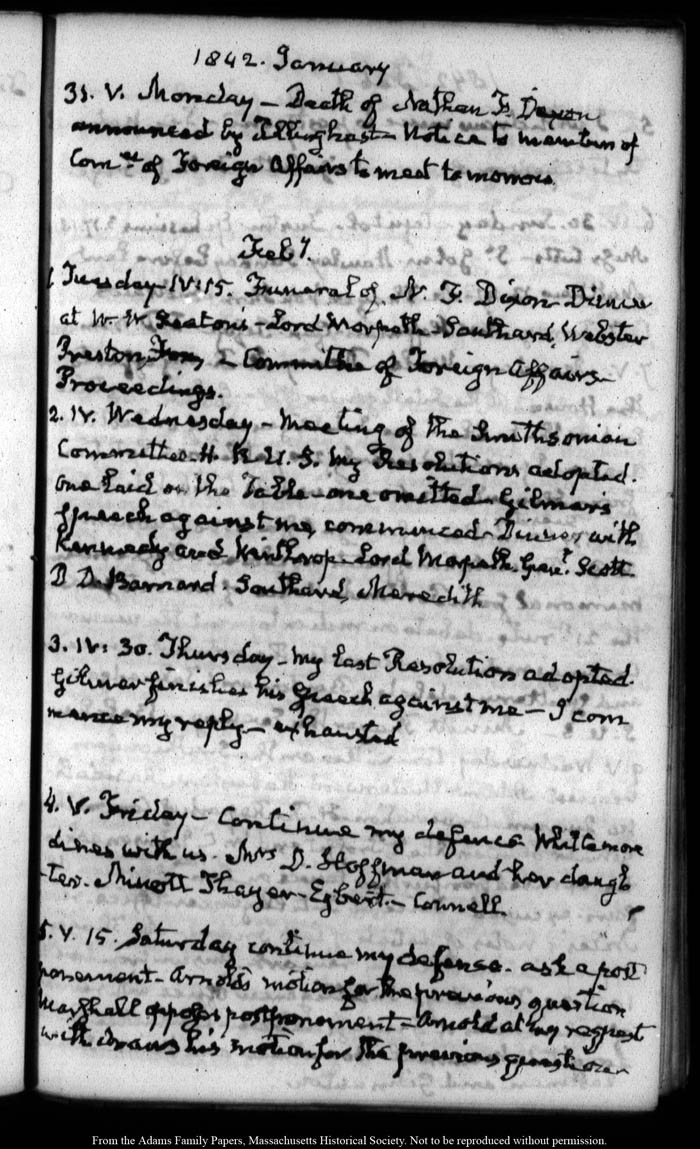 1842. January
31. V. Monday – Death of Nathan F. Dixon
announced by Tillinghast – Notice to members of
Com.ee of Foreign Affairs to meet tomorrow.
Feb.y.
1 Tuesday IV:15. Funeral of N. F. Dixon – Dinner
at W. W. Seaton's – Lord Morpeth – Southard, Webster
Preston, – Committee of Foreign Affairs –
Proceedings.
2. IV. Wednesday – Meeting of the Smithsonian
Committee H. R. U. S. My Resolutions adopted.
one laid on the Table – one omitted – Gilmer's
Speech against me, commenced – Dinner with
Kennedy and Winthrop – Lord Morpeth. Gen.l Scott
D D. Barnard. Southard, Meredith
3. IV: 30. Thursday – My last Resolution adopted.
Gilmer finishes his Speech against me – I com
mence my reply – exhausted
4. V. Friday – Continue my defence Whittemore
dines with us. Mrs D. Hoffman and her daugh
-ter. Minott Thayer – Egbert – Connell.
5. V. 15. Saturday continue my defense. ask a post
ponement – Arnold's motion for the previous question
Marshall opposes postponement – Arnold at my request
withdraws his motion for the previous question
From the Adams Family Papers, Massachusetts Historical Society. Not to be reproduced without permission.